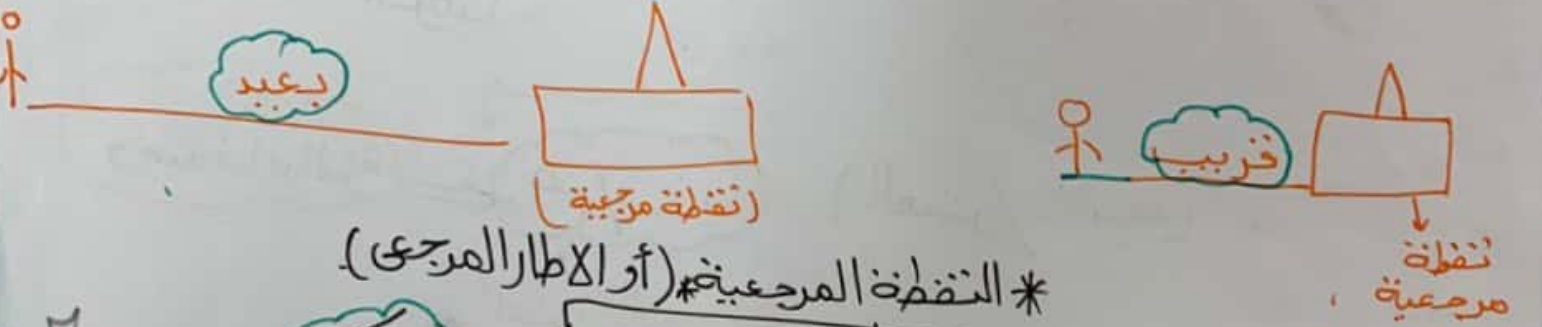 قريب
نقطة
مرجعية
بعيد
(نقطة مرجعية)
* النقطة المرجعية * (أو الاطار المرجعى).